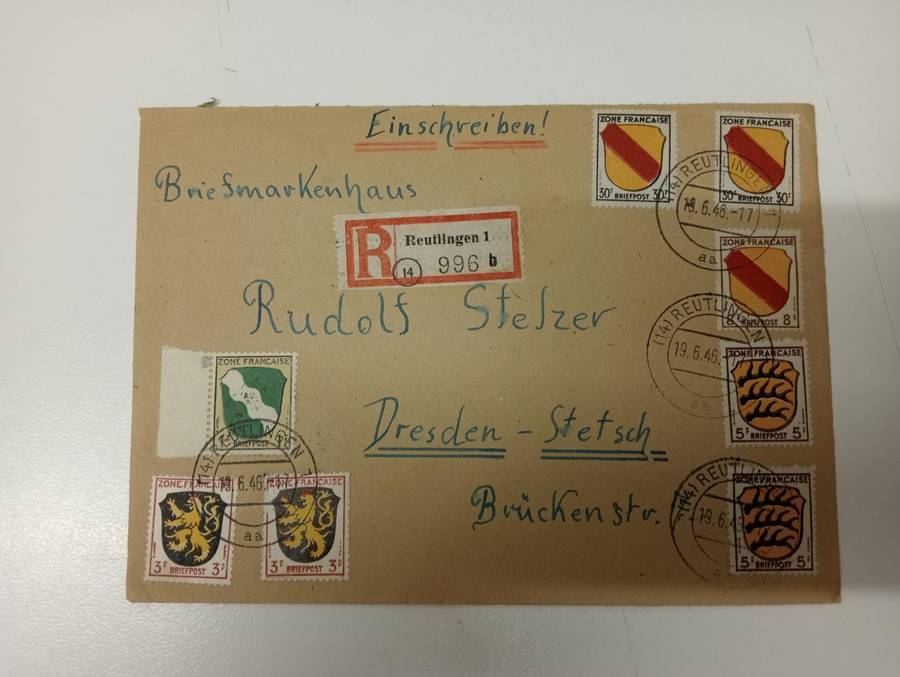 Einschreiben!
ZONE FRANCAISE
30F BRIEFPOST 30F
ZONE FRANCAISE
30F BRIEFPOST 30F
Briefmarkenhaus
(14) REUTLINGEN
19.6.46.-17
aa
R Reutlingen 1
14 996 b
ZONE FRANCAISE
8 BRIEFPOST 8
Rudolf Stelzer
(14) REUTLINGEN
19.6.46.
aa
ZONE FRANCAISE
5F BRIEFPOST 5F
ZONE FRANCAISE
BRIEFPOST
Dresden - Stetsch
(14) REUTLINGEN 1
19.6.46.-17
aa
ZONE FRANCAISE
3F BRIEFPOST 3F
ZONE FRANCAISE
3F BRIEFPOST 3F
Brückenstr.
(14) REUTLINGEN
19.6.46
ZONE FRANCAISE
5F BRIEFPOST 5F